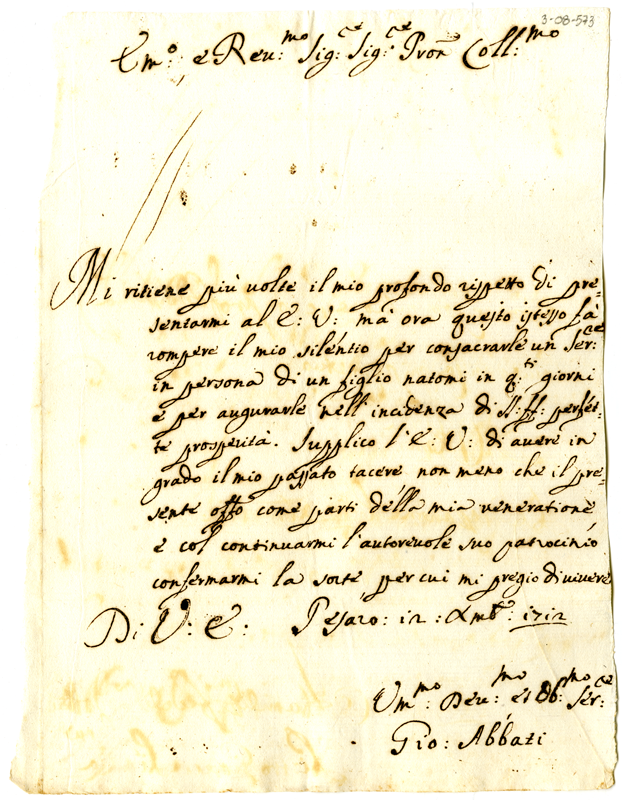 3-08-573
Em:o e Reu:mo Sig:re Sig:re Pron Coll:mo
Mi ritiene più uolte il mio profondo rispetto di pre=
sentarmi al E: V: mà ora questo istesso fà
rompere il mio siléntio per consacrarle un Ser:re
in persona di un figlio natomi in q:ti giorni
e per augurarle nell'incidenza di S:S: ff: perfét=
te prosperità. Supplico l'E: V: di auere in
grado il mio passato tacere non meno che il pre=
sente offo come parti délla mia ueneratione
e col continuarmi l'autoreuole suo patrocinio
confermarmi la sorte per cui mi pregio di uiuere
Di V: E: Pesaro: 12: Xmbe: 1712
Um:mo Deu:mo et Ob:mo Ser:re
Gio: Abbati